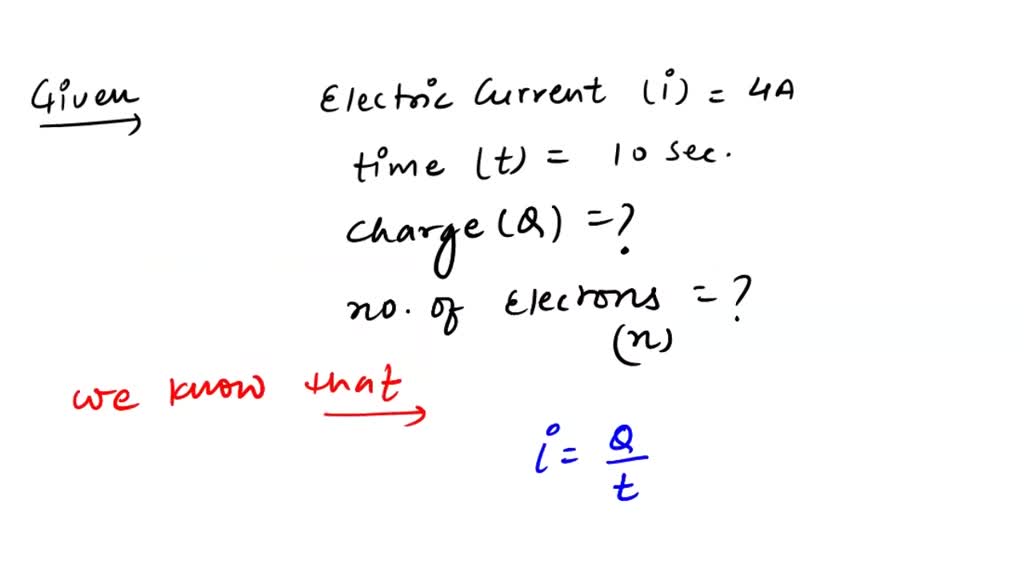 Given Electric Current (i) = 4A
time (t) = 10 sec.
charge (Q) = ?
no. of Elecrons = ?
(n)
we know that
i = Q/t